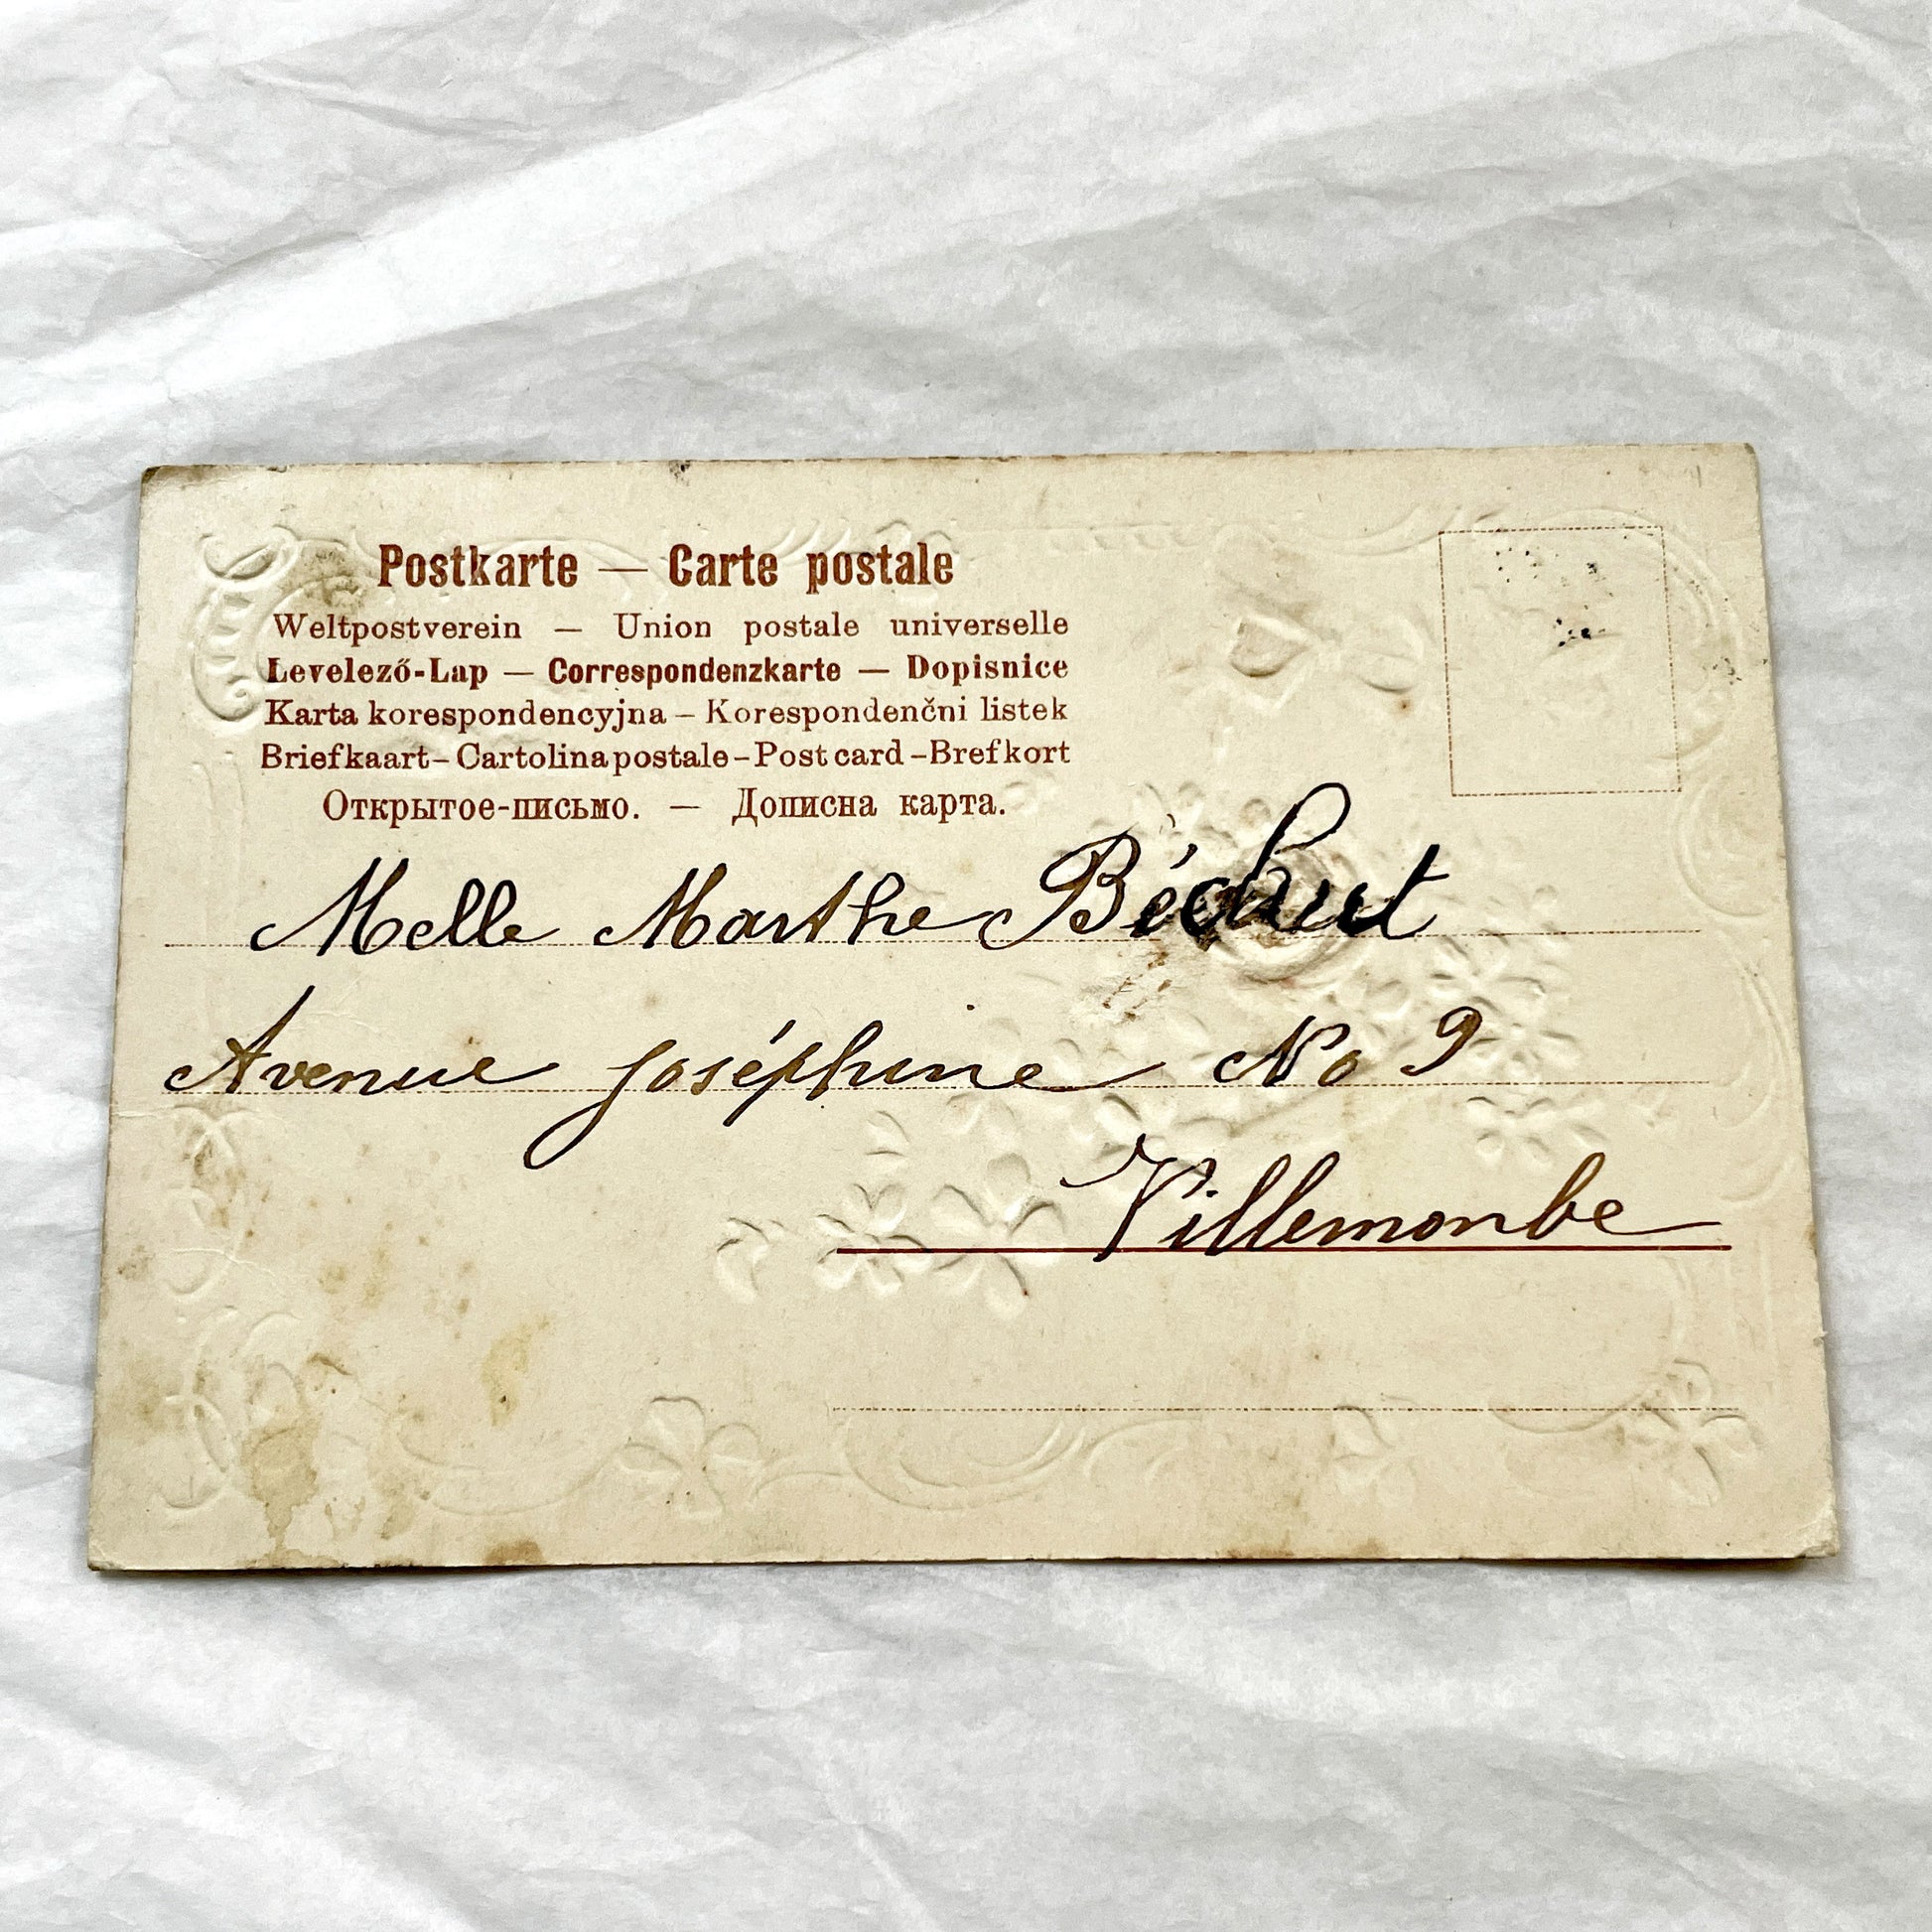 Postkarte — Carte postale
Weltpostverein — Union postale universelle
Levelező-Lap — Correspondenzkarte — Dopisnice
Karta korespondencyjna – Korespondenčni listek
Briefkaart – Cartolina postale – Post card – Brefkort
Открытое-письмо. — Дописна карта.
Melle Marthe Béchut
Avenue Joséphine No 9
Villemonbe